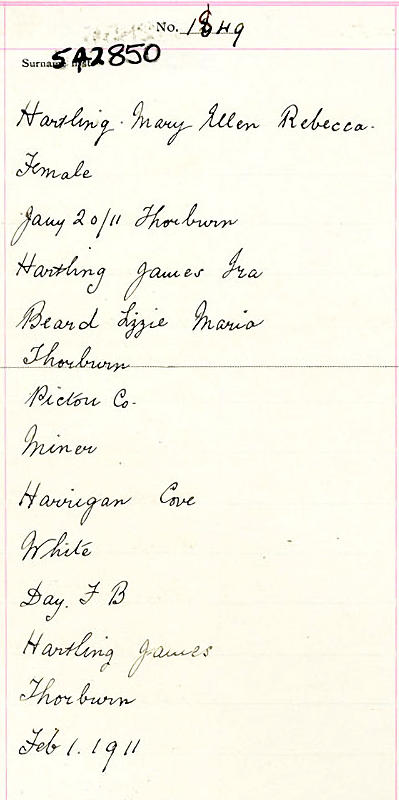 No. 1849
Surname first
5A2850
Hartling. Mary Ellen Rebecca.
Female
Jany 20/11 Thorburn
Hartling James Ira
Beard Lizzie Maria
Thorburn
Pictou Co.
Miner
Harrigan Cove
White
Day. F B
Hartling James
Thorburn
Feb 1. 1911